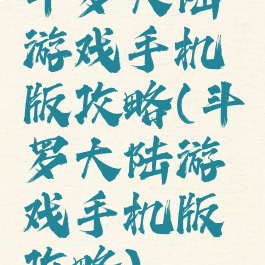 斗罗大陆
游戏手机
版攻略(斗
罗大陆游
戏手机版
攻略)